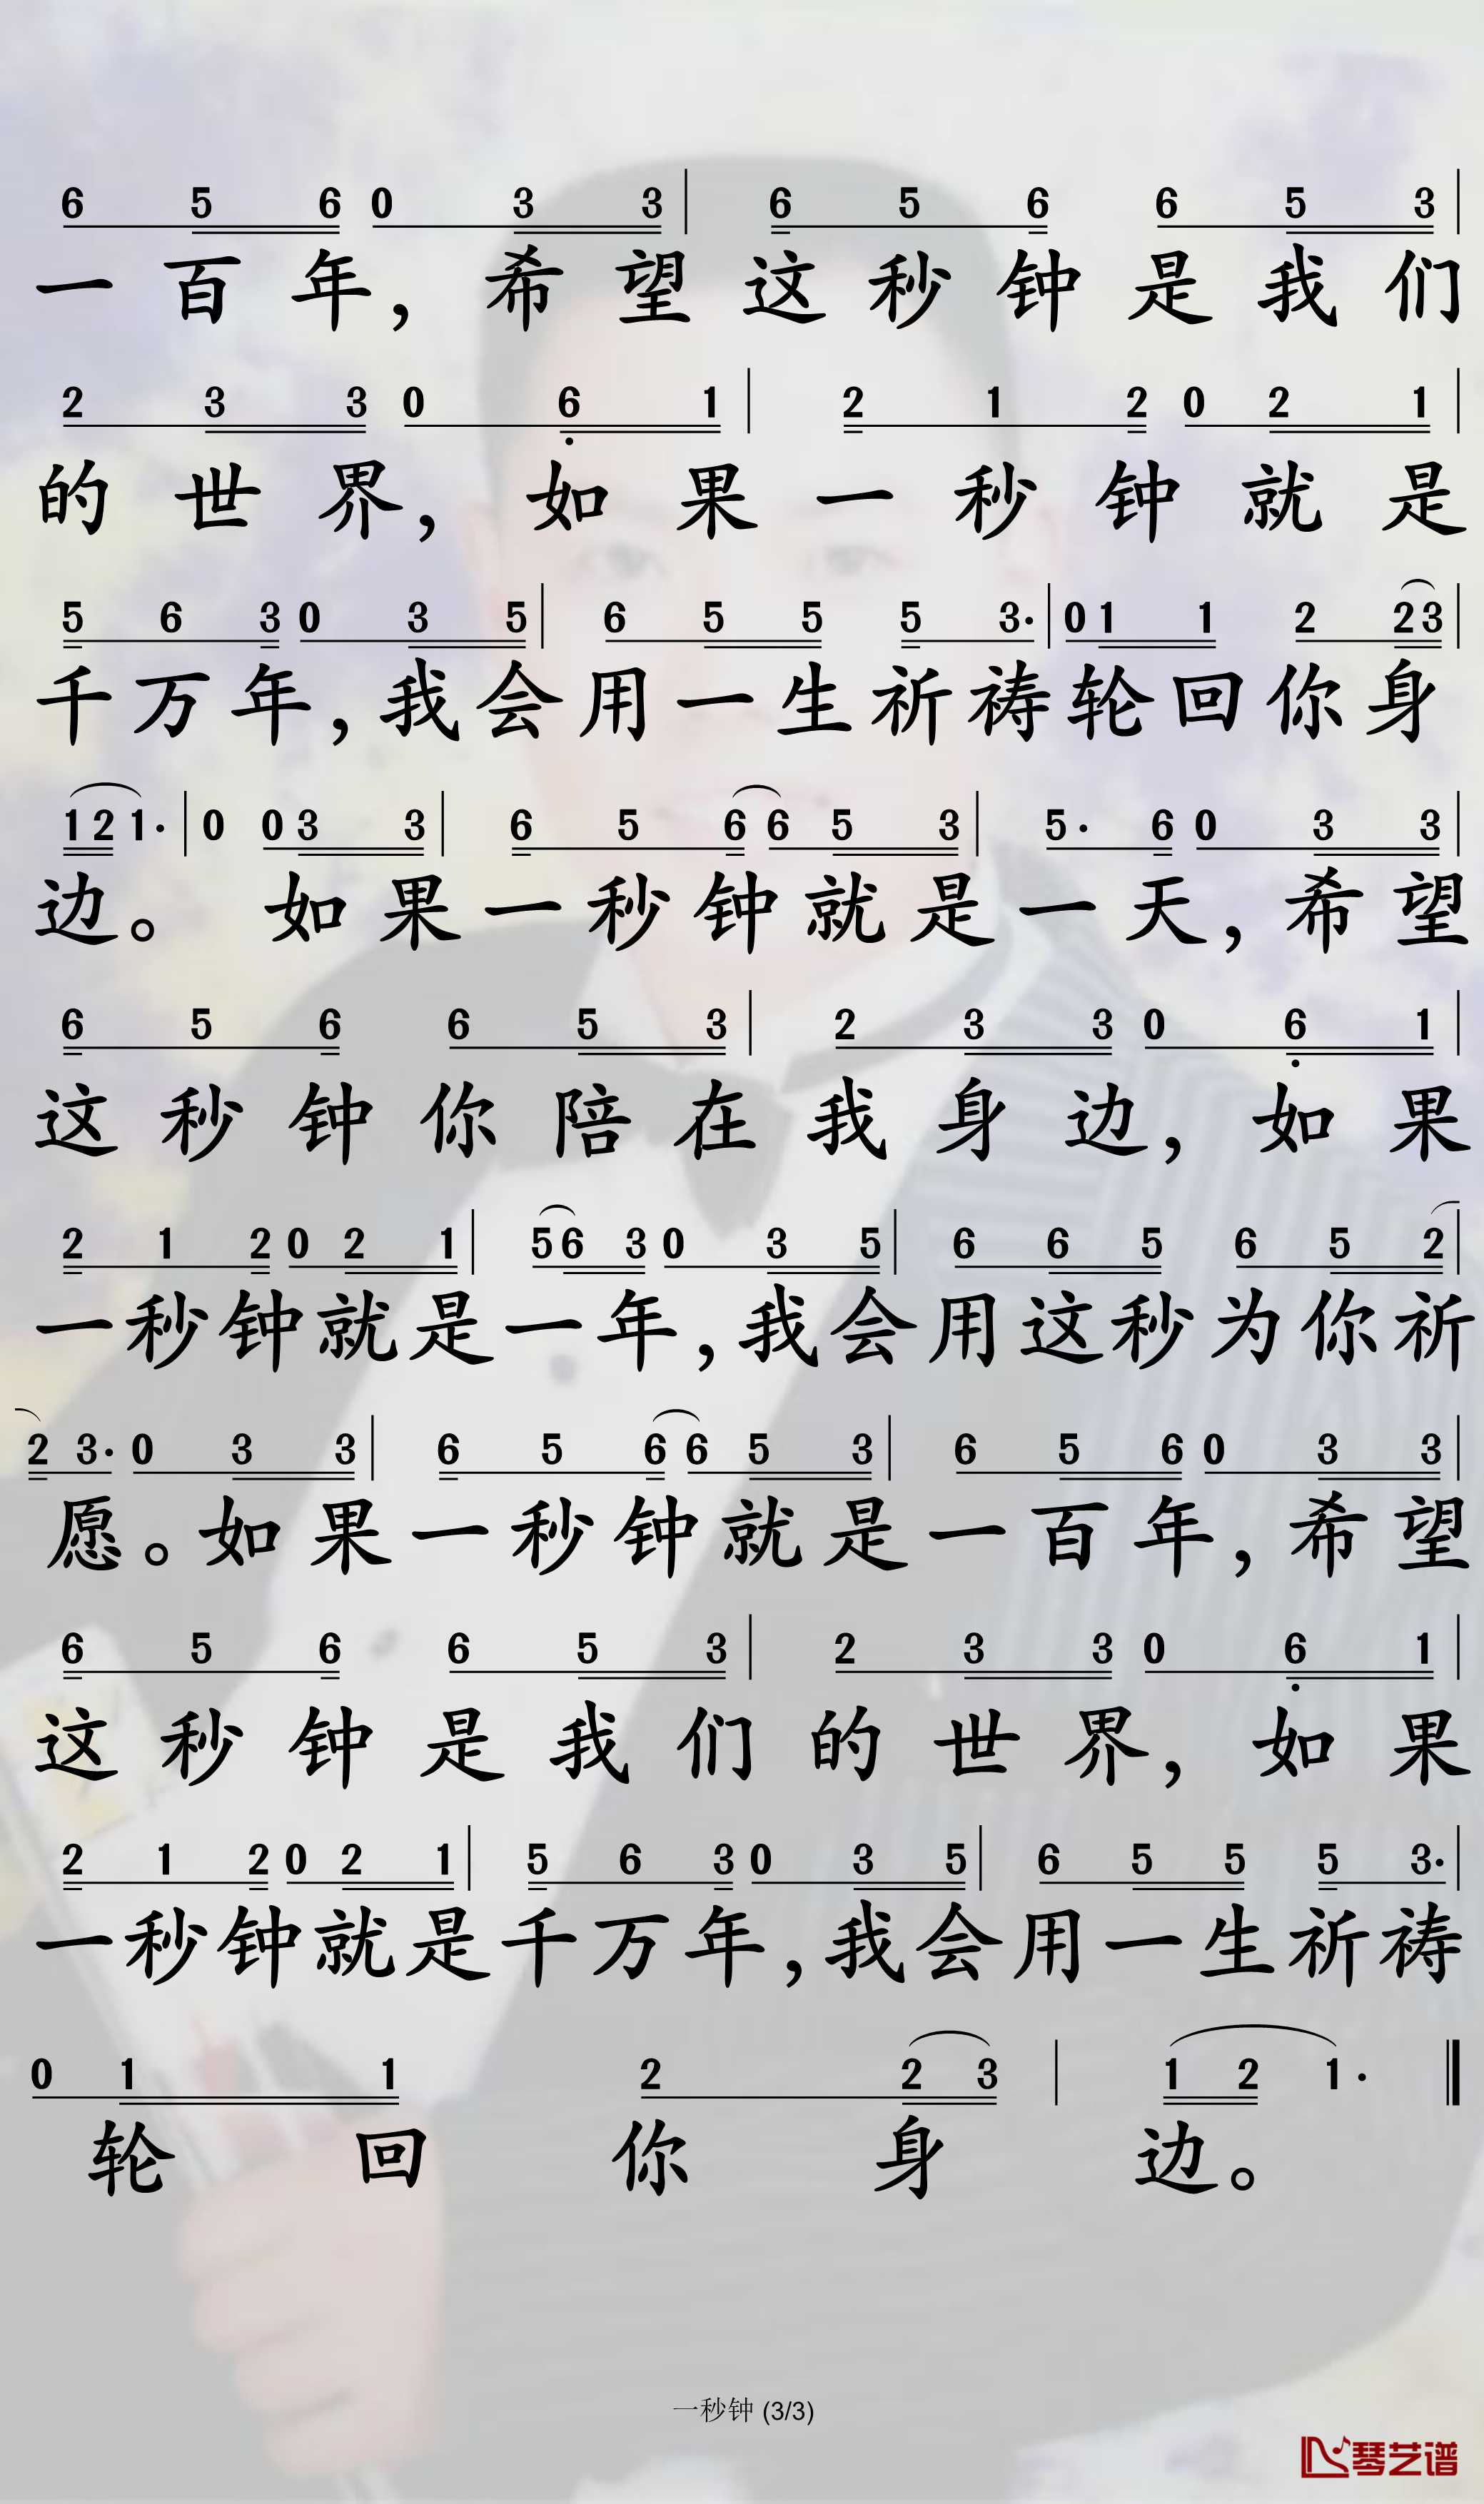 6 5 6 0 3 3 | 6 5 6 6 5 3 |
一百年，希望这秒钟是我们
2 3 3 0 6 1 | 2 1 2 0 2 1 |
的世界，如果一秒钟就是
5 6 3 0 3 5 | 6 5 5 5 3· | 0 1 1 2 2 3 |
千万年，我会用一生祈祷轮回你身
1 2 1· | 0 0 3 3 | 6 5 6 6 5 3 | 5· 6 0 3 3 |
边。如果一秒钟就是一天，希望
6 5 6 6 5 3 | 2 3 3 0 6 1 |
这秒钟你陪在我身边，如果
2 1 2 0 2 1 | 5 6 3 0 3 5 | 6 6 5 6 5 2 |
一秒钟就是一年，我会用这秒为你祈
2 3· 0 3 3 | 6 5 6 6 5 3 | 6 5 6 0 3 3 |
愿。如果一秒钟就是一百年，希望
6 5 6 6 5 3 | 2 3 3 0 6 1 |
这秒钟是我们的世界，如果
2 1 2 0 2 1 | 5 6 3 0 3 5 | 6 5 5 5 3· |
一秒钟就是千万年，我会用一生祈祷
0 1 1 2 2 3 | 1 2 1· ‖
轮回你身边。
一秒钟 (3/3)
琴艺谱